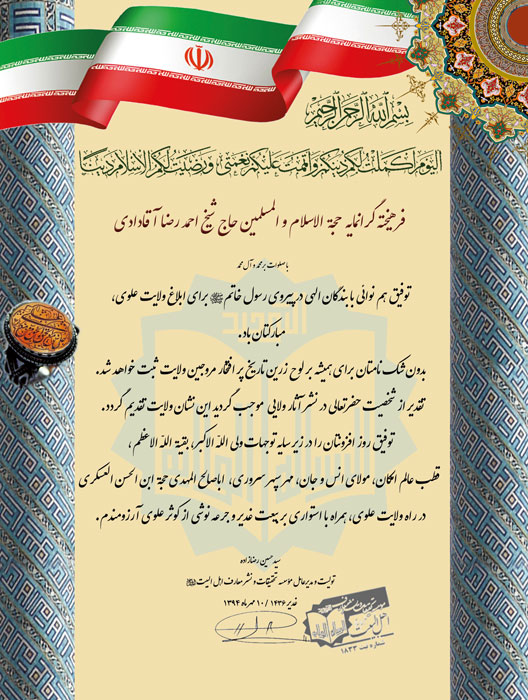 بسم الله الرحمن الرحیم
الیوم اکملت لکم دینکم و اتممت علیکم نعمتی و رضیت لکم الاسلام دینا
فرهیخته گرانمایه حجة الاسلام و المسلمین حاج شیخ احمد رضا آقادادی
با صلوات بر محمد و آل محمد
توفیق هم نوائی با بندگان الهی در پیروی رسول خاتم ﷺ برای ابلاغ ولایت علوی،
مبارکتان باد.
بدون شک نامتان برای همیشه بر لوح زرین تاریخ پر افتخار مروجین ولایت ثبت خواهد شد.
تقدیر از شخصیت حضرتعالی در نشر آثار ولایی موجب گردید این نشان ولایت تقدیم گردد.
توفیق روز افزونتان را در زیر سایه توجهات ولی الله الاکبر، بقیة الله الاعظم،
قطب عالم امکان، مولای انس و جان، مهر سپهر سروری، اباصالح المهدی حجة ابن الحسن العسکری
در راه ولایت علوی، همراه با استواری بر بیعت غدیر و جرعه نوشی از کوثر علوی آرزومندم.
سید حسین رضازاده
تولیت و مدیرعامل مؤسسه تحقیقات و نشر معارف اهل البیت
غدیر ۱۴۳۶ / ۱۰ مهرماه ۱۳۹۴
اهل البیت
شماره ثبت ۱۸۳۳